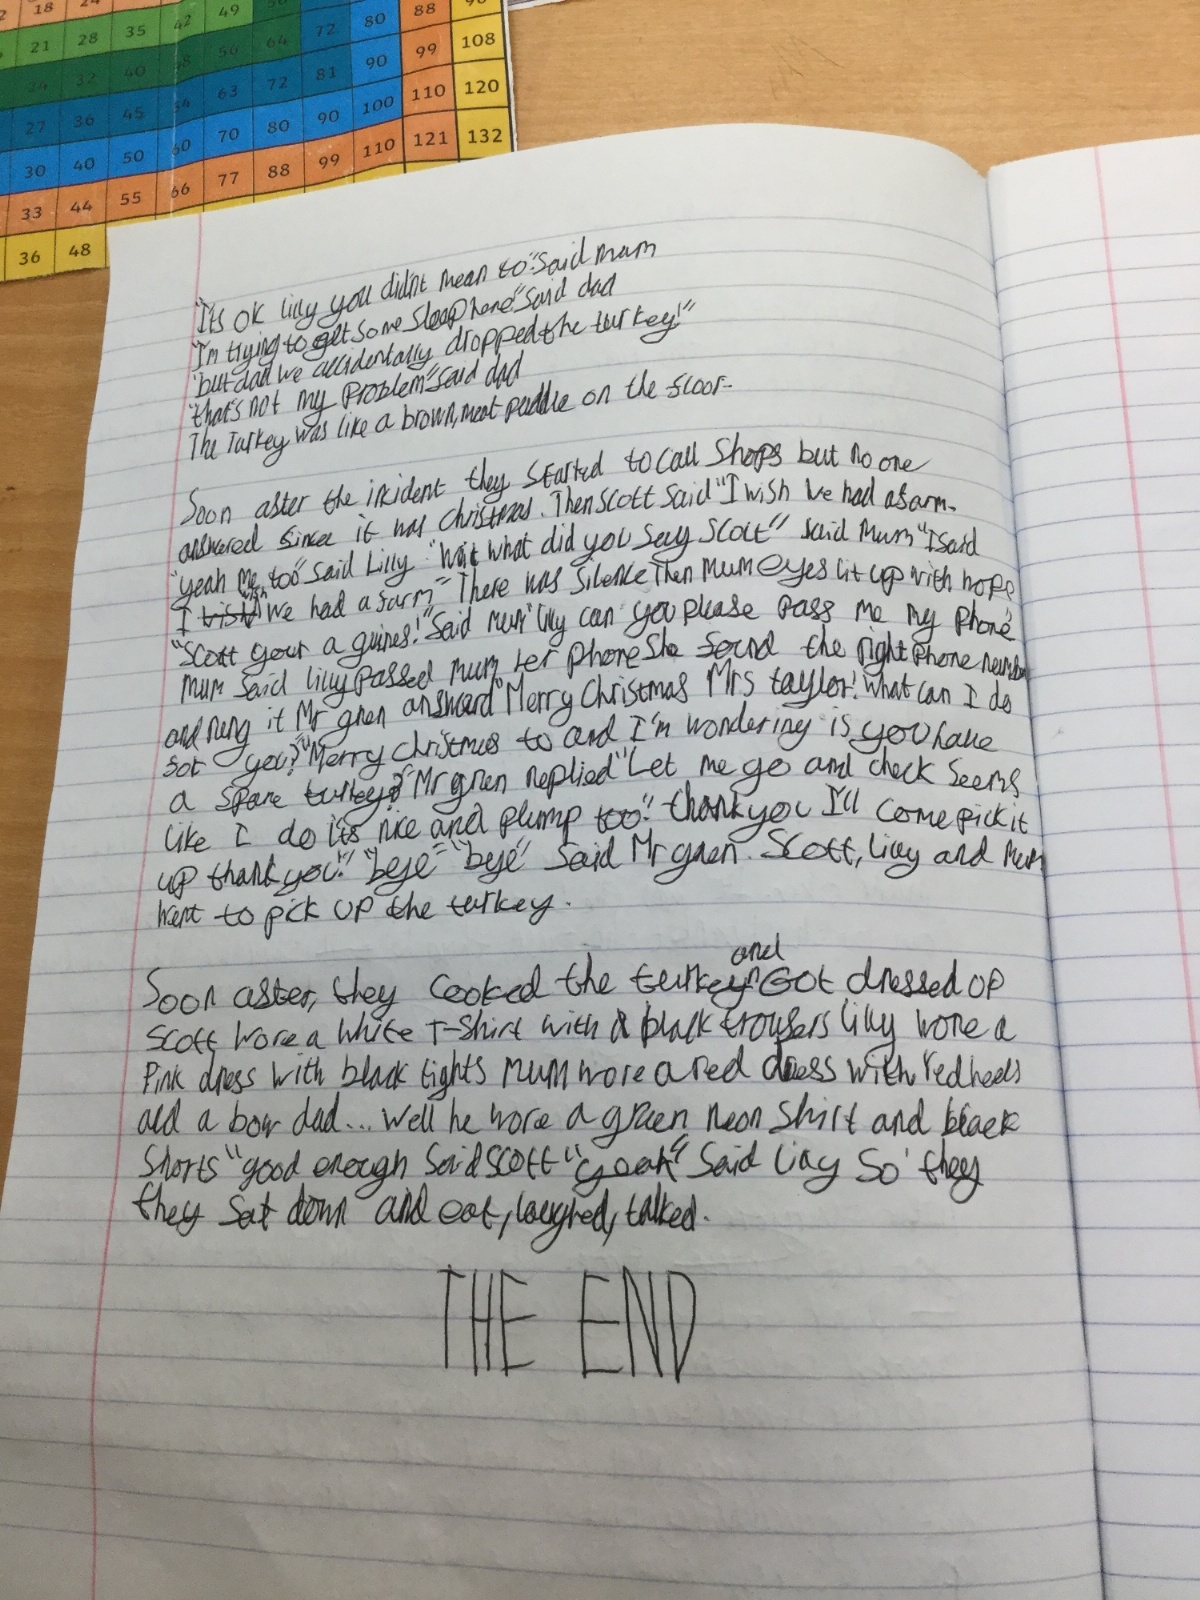 18 24
21 28 35 42 49 56 72 80 88 96
24 32 40 48 56 64 72 81 90 99 108
27 36 45 54 63 72 81 90 100 110 120
30 40 50 60 70 80 90 100 110 121 132
33 44 55 66 77 88 99 110
36 48
"Its ok lilly you didn't mean to" Said mum
"I'm trying to get some sleep here" Said dad
"but dad we accidentally dropped the turkey!"
"that's not my problem" Said dad
The Turkey was like a brown, meat puddle on the floor.
Soon after the inkident they started to call Shops but no one
answered since it was christmas. Then Scott Said "I wish we had a farm.
"yeah me too" Said Lilly. "Wait what did you say Scott" Said Mum "I Said
I wish we had a farm" There was Silence Then Mum eyes lit up with hope
"Scott your a guines!" Said mum "lilly can you please pass me my phone"
mum Said lilly passed mum her phone She found the right phone number
and reng it Mr green answerd "Merry Christmas Mrs taylor! What can I do
for you?" "Merry christmas to and I'm wondering if you have
a spare turkey?" Mr green replied "Let me go and check Seems
like I do its nice and plump too!" thank you I'll come pick it
up thank you!" "bye" "bye" Said Mr green. Scott, lilly and mum
went to pick up the turkey.
and
Soon after, they cooked the turkey Got dressed up
Scott wore a white T-Shirt with black trousers lilly wore a
Pink dress with black tights Mum wore a red dress with red heels
and a bow dad... well he wore a green neon Shirt and black
Shorts "good enough Said Scott "yeah" Said lilly So they
they Sat down and eat, laughed, talked.
THE END